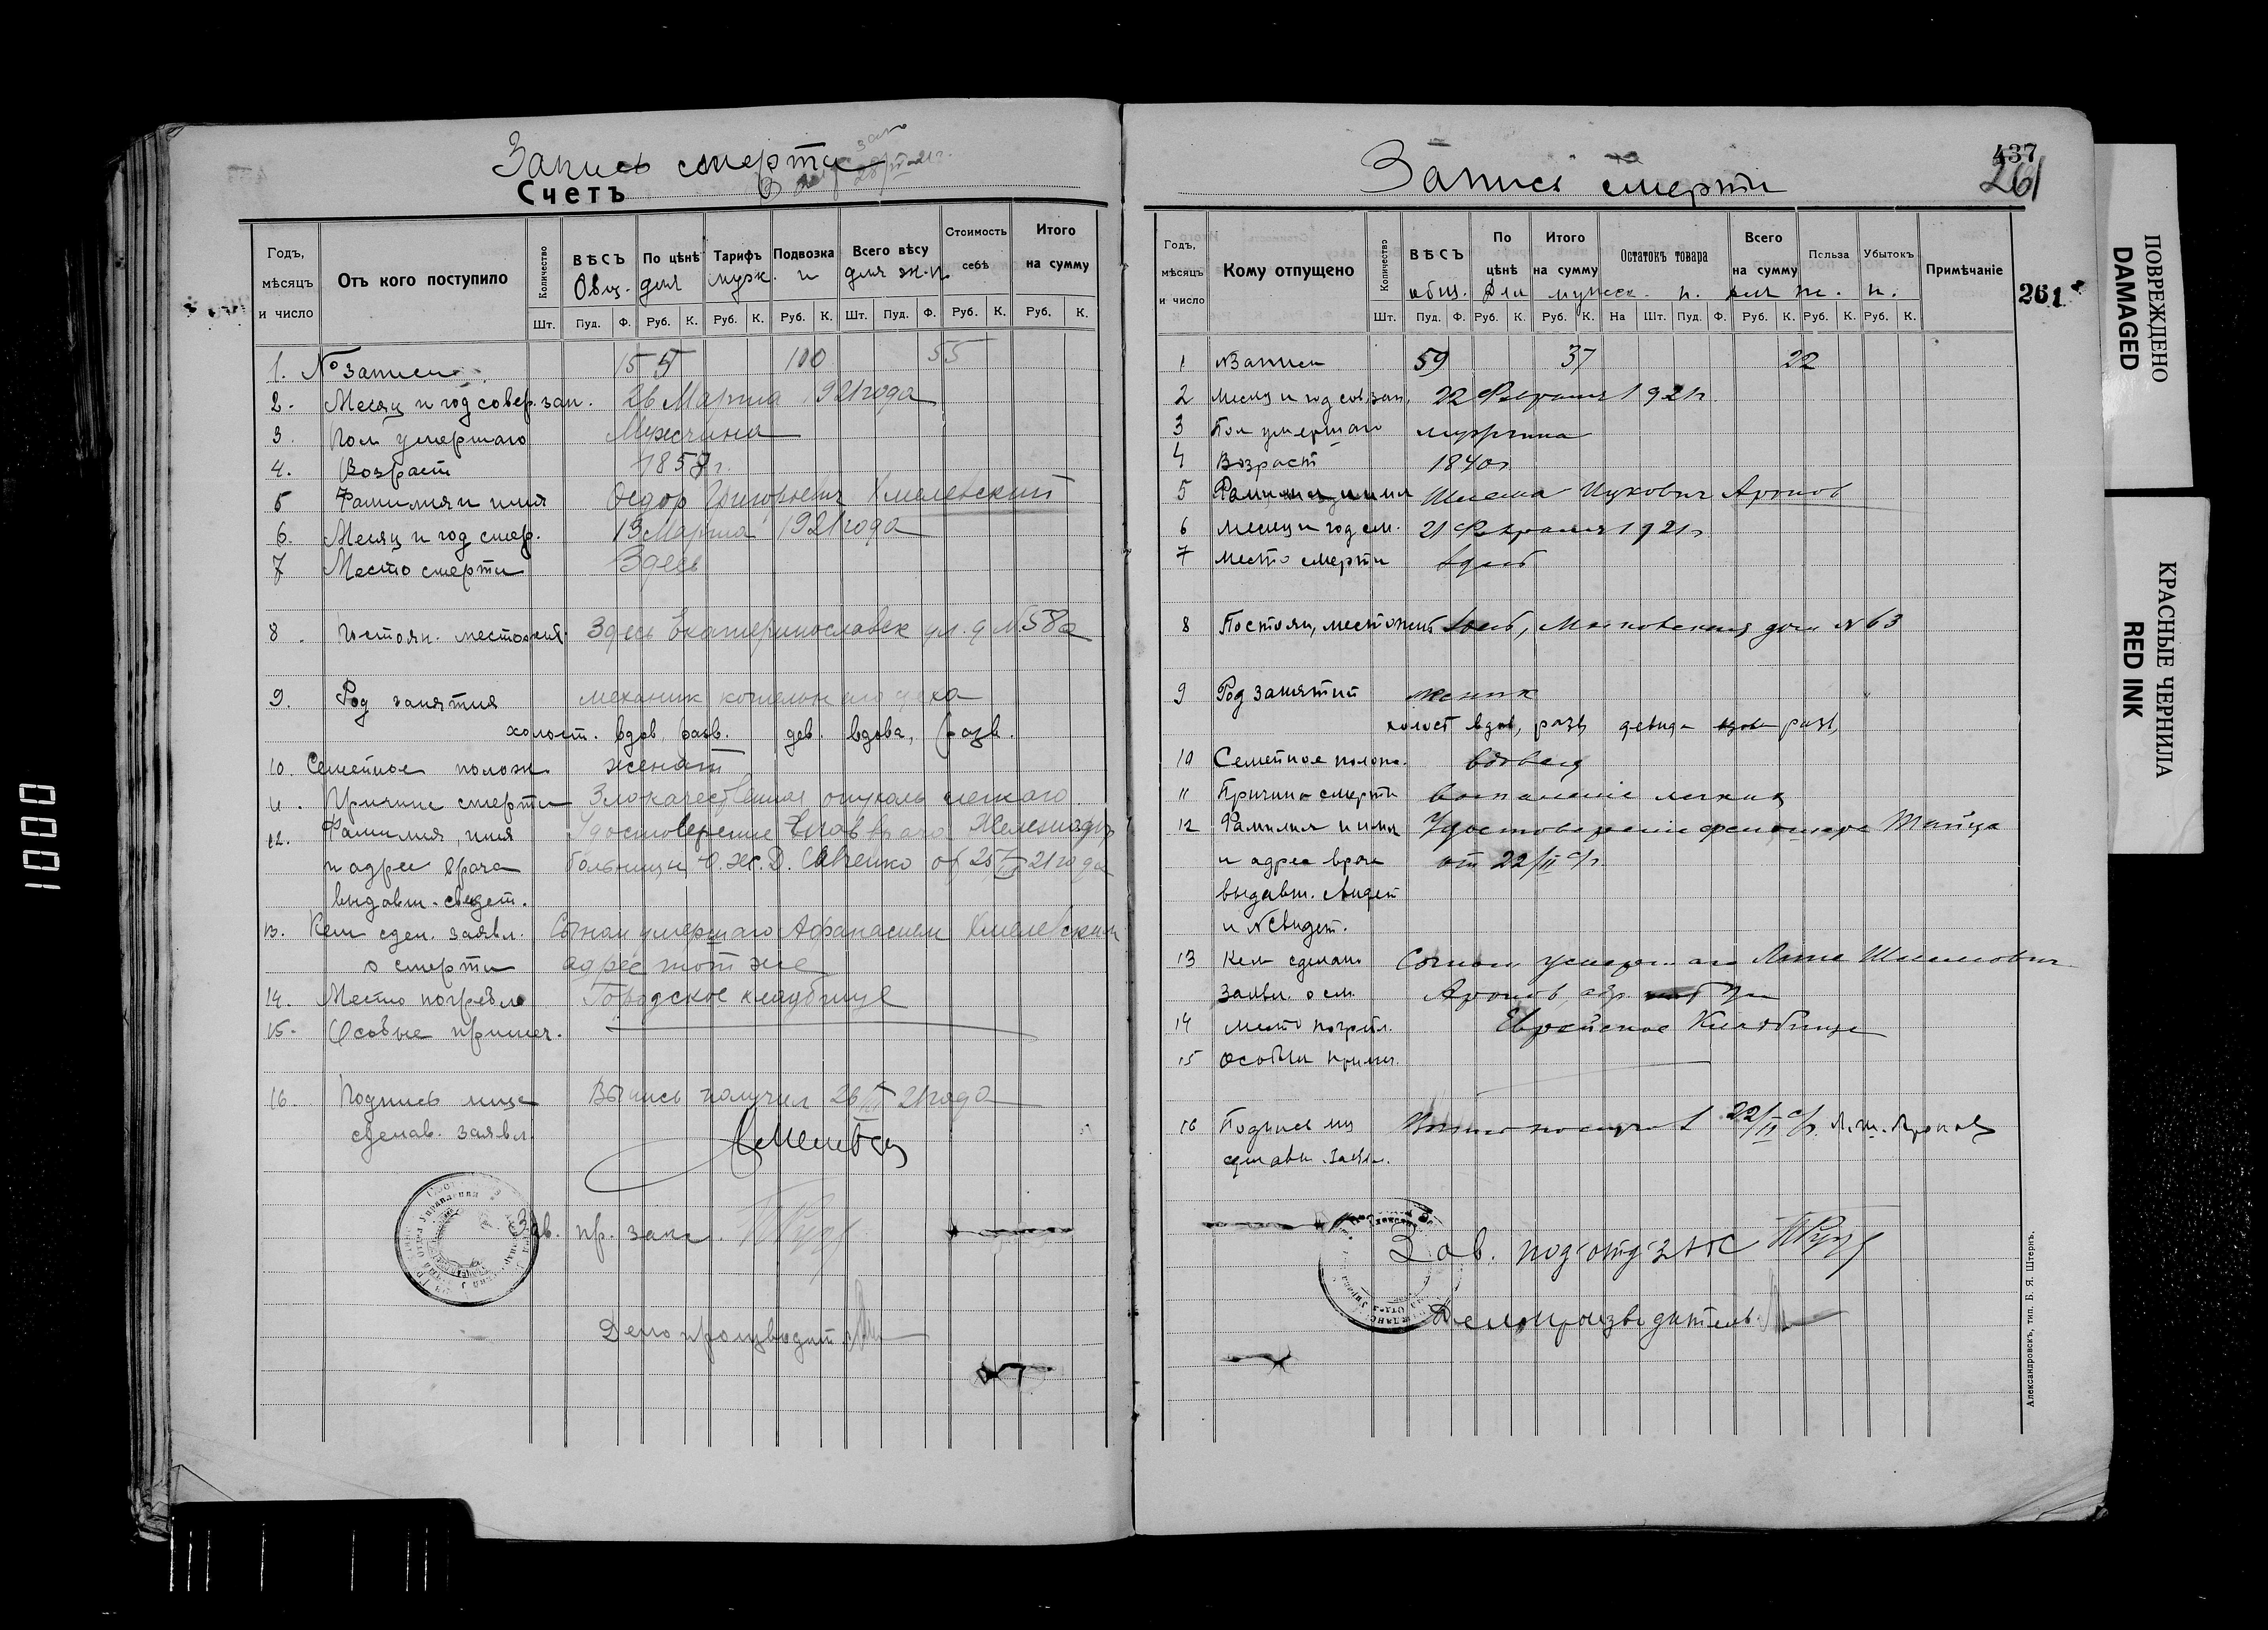 Запись смерти
28/IV-21г.
Счетъ
Годъ, мѣсяцъ и число
Отъ кого поступило
Количество
ВѢСЪ
По цѣнѣ
Тарифъ
Подвозка
Всего вѣсу
Стоимость себѣ
Итого на сумму
Общ. для мужк. и для ж.п.
Шт. Пуд. Ф. Руб. К. Руб. К. Руб. К. Шт. Пуд. Ф. Руб. К. Руб. К.
1. № записи 155 100 55
2. Месяц и год совер. зап. 26 Марта 1921 года
3. Пол умершаго Мужчина
4. Возраст 1858 г.
5 Фамилия и имя Федор Григорьевич Хмелевский
6. Месяц и год смер. 13 Марта 1921 года
7 Место смерти Здесь
8. Постоян. местожит. Здесь Екатеринославск ул. д №58а
9. Род занятия механик котельнаго цеха
холост. вдов. разв. дев. вдова, разв.
10. Семейное полож. женат
11. Причина смерти Злокачественная опухоль легкаго
12. Фамилия, имя Удостоверение Глав врача Железнодор
и адрес врача больницы Ю.Ж.Д. Савченко от 25/III 21 года
выдавш. свидет.
13. Кем сдел. заявл. Сыном умершаго Афанасием Хмелевским
о смерти адрес тот же
14. Место погребл Городское кладбище
15. Особые примеч.
16. Подпись лица Выпись получил 26/III 21 года
сделав. заявл.
Зав. пр. запс.
Делопроизводит.
Запись смерти
437
261
Годъ, мѣсяцъ и число
Кому отпущено
Количество
ВѢСЪ
По цѣнѣ
Итого на сумму
Остатокъ товара
Всего на сумму
Польза
Убытокъ
Примѣчаніе
261
общ. Для мужск. п. для ж. п.
Шт. Пуд. Ф. Руб. К. Руб. К. На Шт. Пуд. Ф. Руб. К. Руб. К. Руб. К.
1 № Записи 59 37 22
2 Месяц и год сов. зап. 22 Февраля 1921 г.
3 Пол умершаго мужчина
4 Возраст 1840 г.
5 Фамилия и имя Шлема Ицкович Аронов
6 Месяц и год см. 21 Февраля 1921 г.
7 Место смерти здесь
8 Постоян, местожит Здесь, Московская дом № 63
9 Род занятий
холост вдов, разв, девица вдова разв,
10 Семейное полож. вдовец
11 Причина смерти воспаление легких
12 Фамилия и имя Удостоверение фельдшера Тайца
и адрес врача от 22/II с/г.
выдавш. свидет
и № свидет.
13 Кем сделано Сыном умершаго Шлемович
заявл. о см. Аронов адр.
14 Место погребл. Еврейское Кладбище
15 Особыя примеч.
16 Подпись лиц Выпись получил 22/II с/г. Л.Ш. Аронов
сделавш. заявл.
Зав. под-отд-ЗАГС
Делопроизводитель
Александровскъ, тип. Б. Я. Штернъ.
ПОВРЕЖДЕНО
DAMAGED
КРАСНЫЕ ЧЕРНИЛА
RED INK
1000